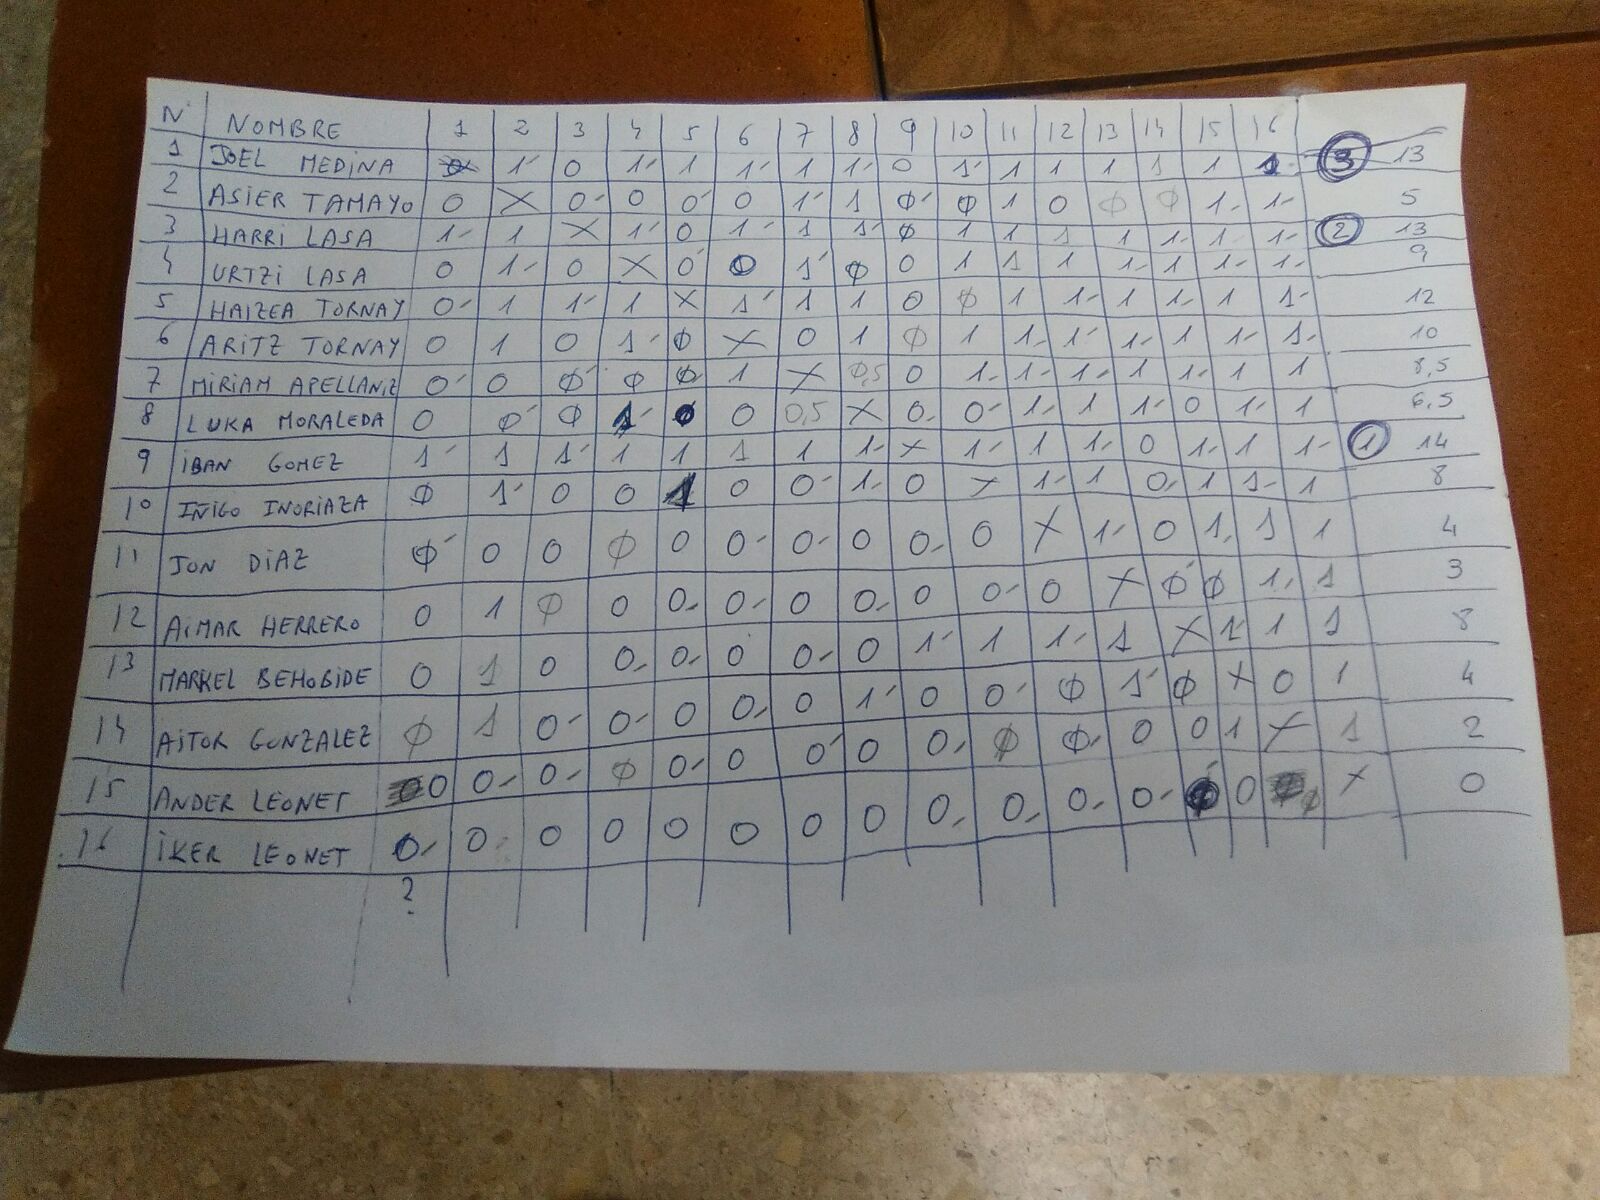 Nº NOMBRE 1 2 3 4 5 6 7 8 9 10 11 12 13 14 15 16
1 JOEL MEDINA X 1 0 1 1 1 1 1 0 1 1 1 1 1 1 1 3 13
2 ASIER TAMAYO 0 X 0 0 0 0 1 1 0 0 1 0 0 0 1 1 5
3 HARRI LASA 1 1 X 1 0 1 1 1 0 1 1 1 1 1 1 1 2 13
4 URTZI LASA 0 1 0 X 0 0 1 0 0 1 1 1 1 1 1 1 9
5 HAIZEA TORNAY 0 1 1 1 X 1 1 1 0 0 1 1 1 1 1 1 12
6 ARITZ TORNAY 0 1 0 1 0 X 0 1 0 1 1 1 1 1 1 1 10
7 MIRIAM APELLANIZ 0 0 0 0 0 1 X 0,5 0 1 1 1 1 1 1 1 8,5
8 LUKA MORALEDA 0 0 0 1 0 0 0,5 X 0 0 1 1 1 0 1 1 6,5
9 IBAN GOMEZ 1 1 1 1 1 1 1 1 X 1 1 1 0 1 1 1 1 14
10 IÑIGO INORIAZA 0 1 0 0 1 0 0 1 0 X 1 1 0 1 1 1 8
11 JON DIAZ 0 0 0 0 0 0 0 0 0 0 X 1 0 1 1 1 4
12 AIMAR HERRERO 0 1 0 0 0 0 0 0 0 0 0 X 0 0 1 1 3
13 MARKEL BEHOBIDE 0 1 0 0 0 0 0 0 1 1 1 1 X 1 1 1 8
14 AITOR GONZALEZ 0 1 0 0 0 0 0 1 0 0 0 1 0 X 0 1 4
15 ANDER LEONET 0 0 0 0 0 0 0 0 0 0 0 0 0 1 X 1 2
16 IKER LEONET 0 0 0 0 0 0 0 0 0 0 0 0 0 0 0 X 0
?